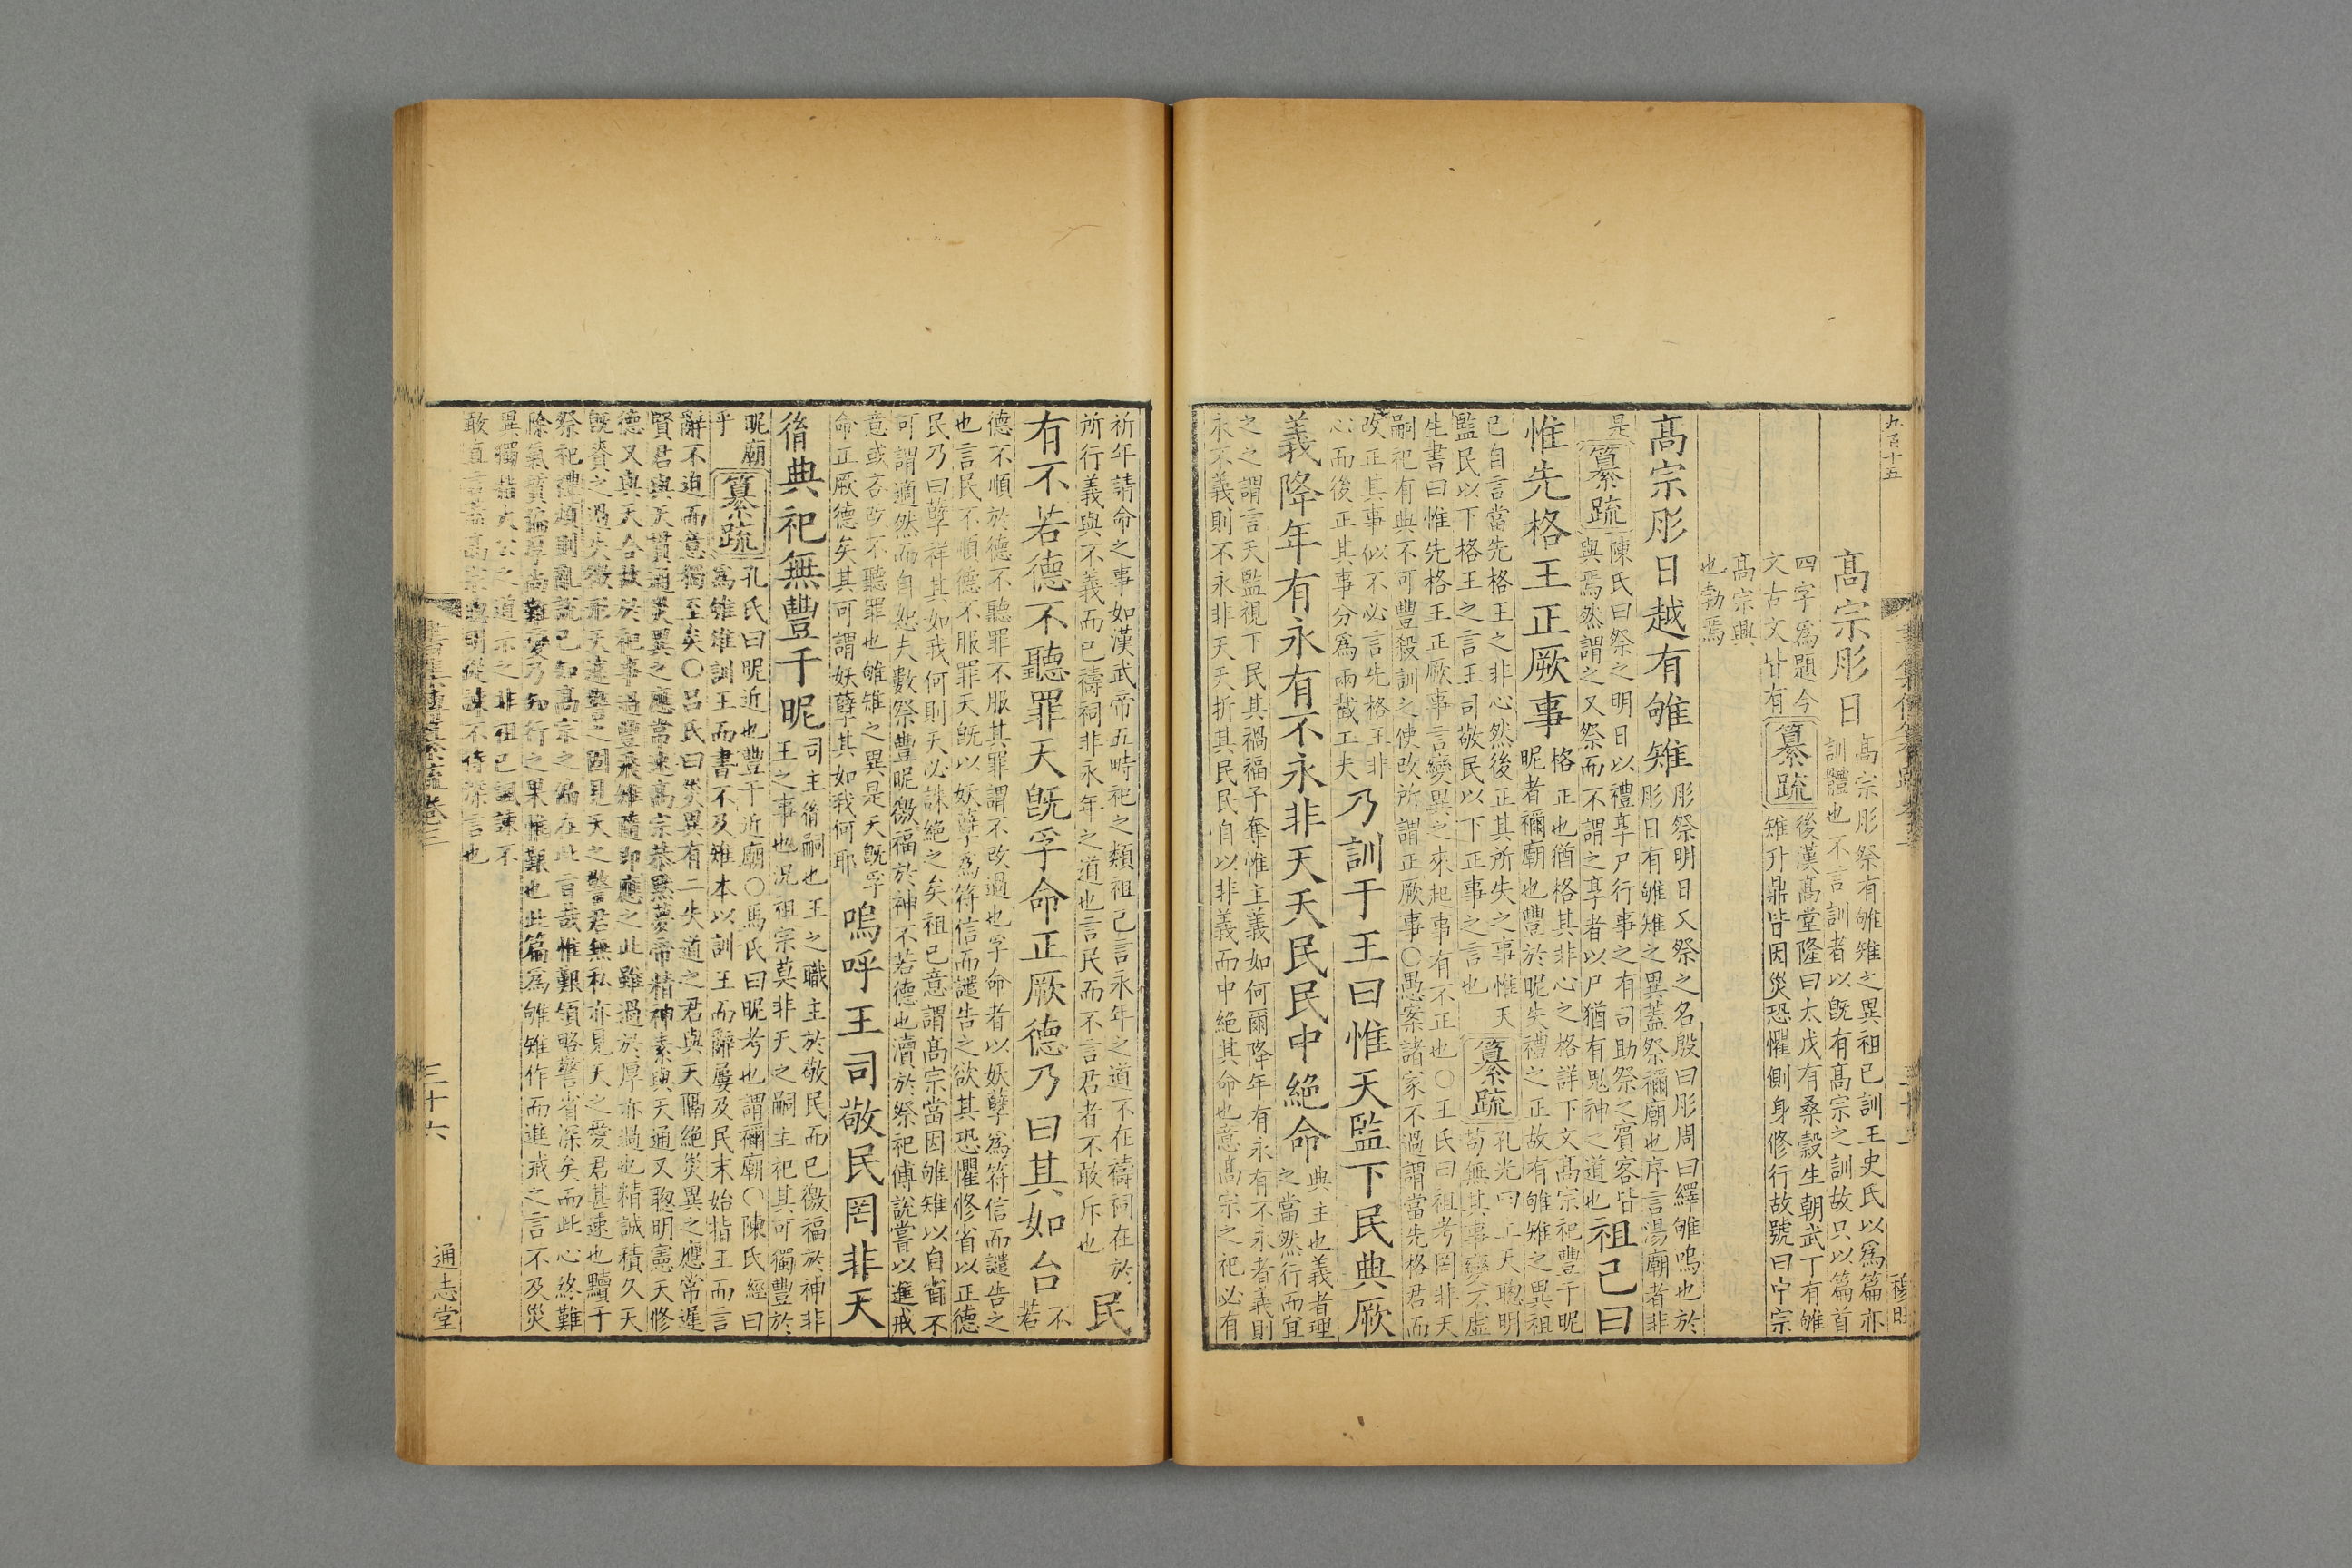 九百十五
高宗肜日
高宗肜祭有雊雉之異祖已訓王史氏以爲篇亦
訓體也不言訓者以旣有高宗之訓故只以篇首
四字爲題今
文古文皆有
纂疏
後漢高堂隆曰太戊有桑穀生朝武丁有雊
雉升鼎皆因災恐懼側身修行故號曰中宗
高宗興
也勃焉
高宗肜日越有雊雉
肜祭明日又祭之名殷曰肜周曰繹雊鳴也於
肜日有雊雉之異蓋祭禰廟也序言湯廟者非
是
纂疏
陳氏曰祭之明日以禮享尸行事之有司助祭之賓客皆
與焉然謂之又祭而不謂之享者以尸猶有鬼神之道也
祖己曰
惟先格王正厥事
格正也猶格其非心之格詳下文高宗祀豐于昵
昵者禰廟也豐於昵失禮之正故有雊雉之異祖
已自言當先格王之非心然後正其所失之事惟天
監民以下格王之言王司敬民以下正事之言也
纂疏
孔光曰上天聰明
苟無其事變不虛
生書曰惟先格王正厥事言變異之來起事有不正也○王氏曰祖考罔非天
嗣祀有典不可豐殺訓之使改所謂正厥事○愚案諸家不過謂當先格君而
改正其事似不必言先格王非
心而後正其事分爲兩截工夫
乃訓于王曰惟天監下民典厥
義降年有永有不永非天夭民民中絕命
典主也義者理
之當然行而宜
之之謂言天監視下民其禍福予奪惟主義如何爾降年有永有不永者義則
永不義則不永非天夭折其民民自以非義而中絕其命也意高宗之祀必有
祈年請命之事如漢武帝五畤祀之類祖己言永年之道不在禱祠在於
所行義與不義而已禱祠非永年之道也言民而不言君者不敢斥也
民
有不若德不聽罪天旣孚命正厥德乃曰其如台
不
若
德不順於德不聽罪不服其罪謂不改過也孚命者以妖孽爲符信而譴告之
也言民不順德不服罪天旣以妖孽爲符信而譴告之欲其恐懼修省以正德
民乃曰孽祥其如我何則天必誅絕之矣祖已意謂高宗當因雊雉以自省不
可謂適然而自恕夫數祭豐昵徼福於神不若德也瀆於祭祀傅說嘗以進戒
意或吝改不聽罪也雊雉之異是天旣孚
命正厥德矣其可謂妖孽其如我何耶
嗚呼王司敬民罔非天
㣧典祀無豐于昵
司主㣧嗣也王之職主於敬民而已徼福於神非
王之事也况祖宗莫非天之嗣主祀其可獨豐於
昵廟
乎
纂疏
孔氏曰昵近也豐于近廟○馬氏曰昵考也謂禰廟○陳氏經曰
爲雉雊訓王而書不及雉本以訓王而辭屢及民末始指王而言
辭不迫而意獨至矣○呂氏曰災異有二失道之君與天隔絕災異之應常遲
賢君與天貫通災異之應常速高宗恭默夢帝精神素與天通又聰明憲天修
德又與天合故於祀事過豐飛雉隨卽應之此雖過於厚亦過也精誠積久天
旣賚之過失微形天遽警之固見天之警君無私亦見天之愛君甚速也黷于
祭祀禮煩則亂說已知高宗之偏在此旨哉惟艱領略警省深矣而此心終難
除氣質偏厚尚難變乃知行之果惟艱也此篇爲雊雉作而進戒之言不及災
異獨指大公之道示之非祖已諷諫不
敢直言蓋高宗聰明從諫不待深言也
書集傳纂疏卷三
三十六
通志堂